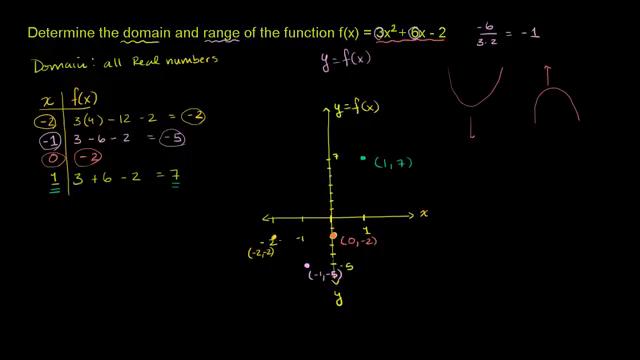 Determine the domain and range of the function f(x) = 3x² + 6x - 2
-6
3·2
= -1
Domain: all Real numbers
y = f(x)
x f(x)
-2 3(4) - 12 - 2 = -2
-1 3 - 6 - 2 = -5
0 -2
1 3 + 6 - 2 = 7
y = f(x)
7
(1, 7)
x
-2
-1
1
(-2,-2)
(0, -2)
-5
(-1, -5)
y